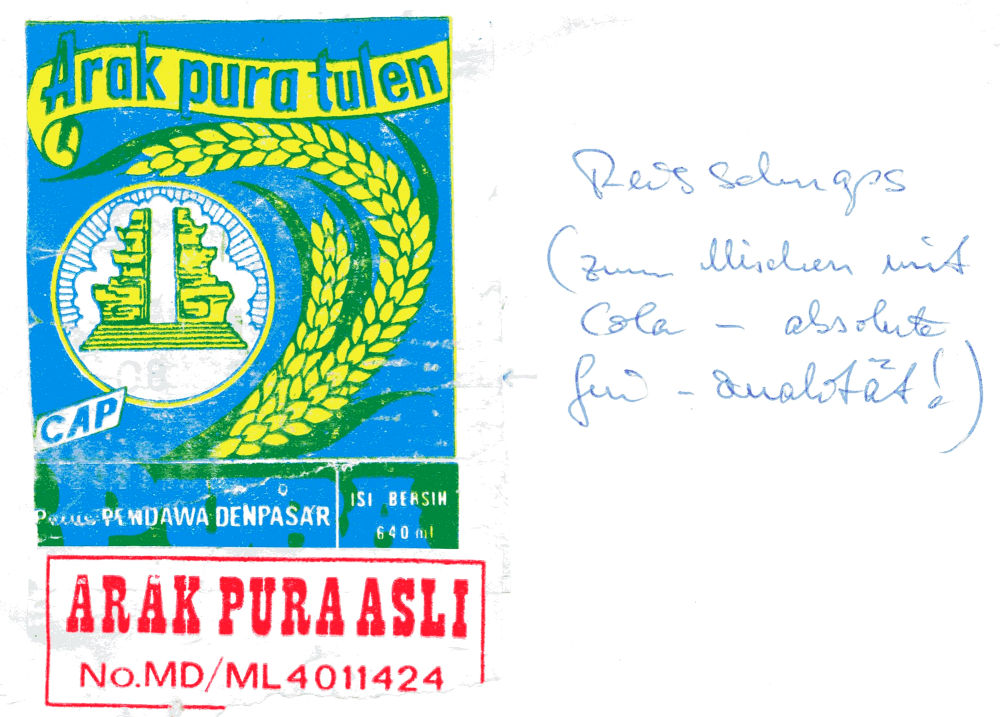 Arak pura tulen
CAP
PENDAWA DENPASAR
ISI BERSIH
640 ml
ARAK PURA ASLI
No.MD/ML 4011424
Reisschnaps
(zum Mischen mit
Cola – absolute
Gin - Qualität!)